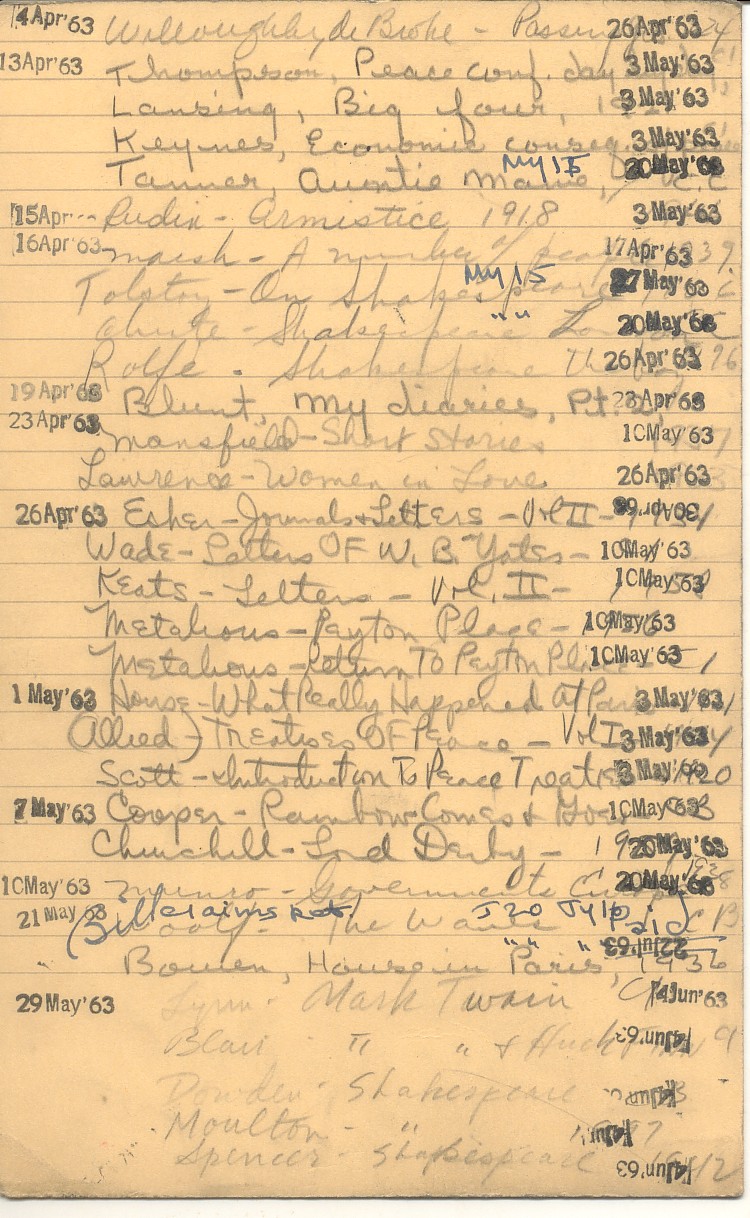 4Apr'63 Willoughby de Broke - Passing 26Apr'63
13Apr'63 Thompson, Peace conf. day 3May'63
Lansing, Big four, 3May'63
Keynes, Economic conseq. 3May'63
MY 15
Tanner, Auntie Mame, 20May'63
15Apr Rudin - Armistice 1918 3May'63
16Apr'63 Marsh - A number of 17Apr'63
MY 15
Tolstoy - On Shakespeare 27May'63
" "
White - Shakespeare 20May'63
Rolfe - Shakespeare The 26Apr'63
19Apr'63 Blunt, My diaries, Pt. 2, 23Apr'63
23Apr'63 Mansfield - Short Stories 10May'63
Lawrence - Women in Love 26Apr'63
26Apr'63 Esher - Journals & Letters - Vol II - 30Apr'63
Wade - Letters OF W. B. Yates - 10May'63
Keats - Letters - Vol. II - 10May'63
Metalious - Peyton Place - 10May'63
Metalious - Return To Peyton Place 10May'63
1May'63 House - What Really Happened At Paris 3May'63
(Allied) Treatises OF Peace - Vol I 3May'63
Scott - Introduction To Peace Treaties 3May'63 1920
7May'63 Cooper - Rainbow Comes & Goes 10May'63
Churchill - Lord Derby - 20May'63
10May'63 Munro - Governments 20May'63
21May'63 (Bill claims ret. J20 Jy1 pd)
Woolf - The Waves CB
" " " 22Jul'63
" Bowen, House in Paris, 1936
29May'63 Lynn - Mark Twain 14Jun'63
Blair " " & Huck Finn 14Jun'63
Dowden - Shakespeare 14Jun
Moulton - " 14Jun
Spencer - Shakespeare 14Jun'63